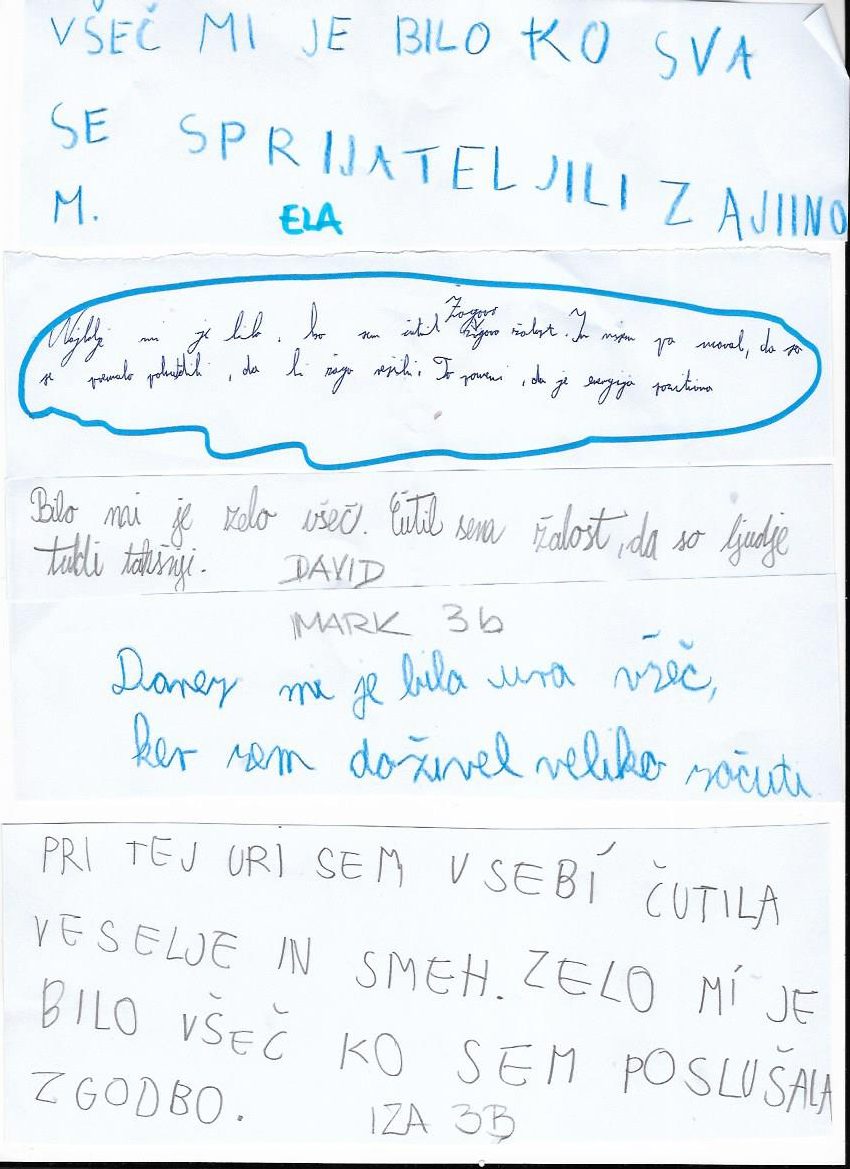 VŠEČ MI JE BILO KO SVA
SE SPRIJATELJILI Z AJIINO
M. ELA
Najbolj mi je bilo, ko sem čutil Žogovo žalost. In nisem pa maral, da so
se premalo potrudili, da bi žogo rešili. To pomeni, da je energija pozitivna
Bilo mi je zelo všeč. Čutil sem žalost, da so ljudje
tudi takšnji. DAVID
MARK 3b
Danes mi je bila ura všeč,
ker sem doživel veliko sočuti
PRI TEJ URI SEM V SEBI ČUTILA
VESELJE IN SMEH. ZELO MI JE
BILO VŠEČ KO SEM POSLUŠALA
ZGODBO. IZA 3B